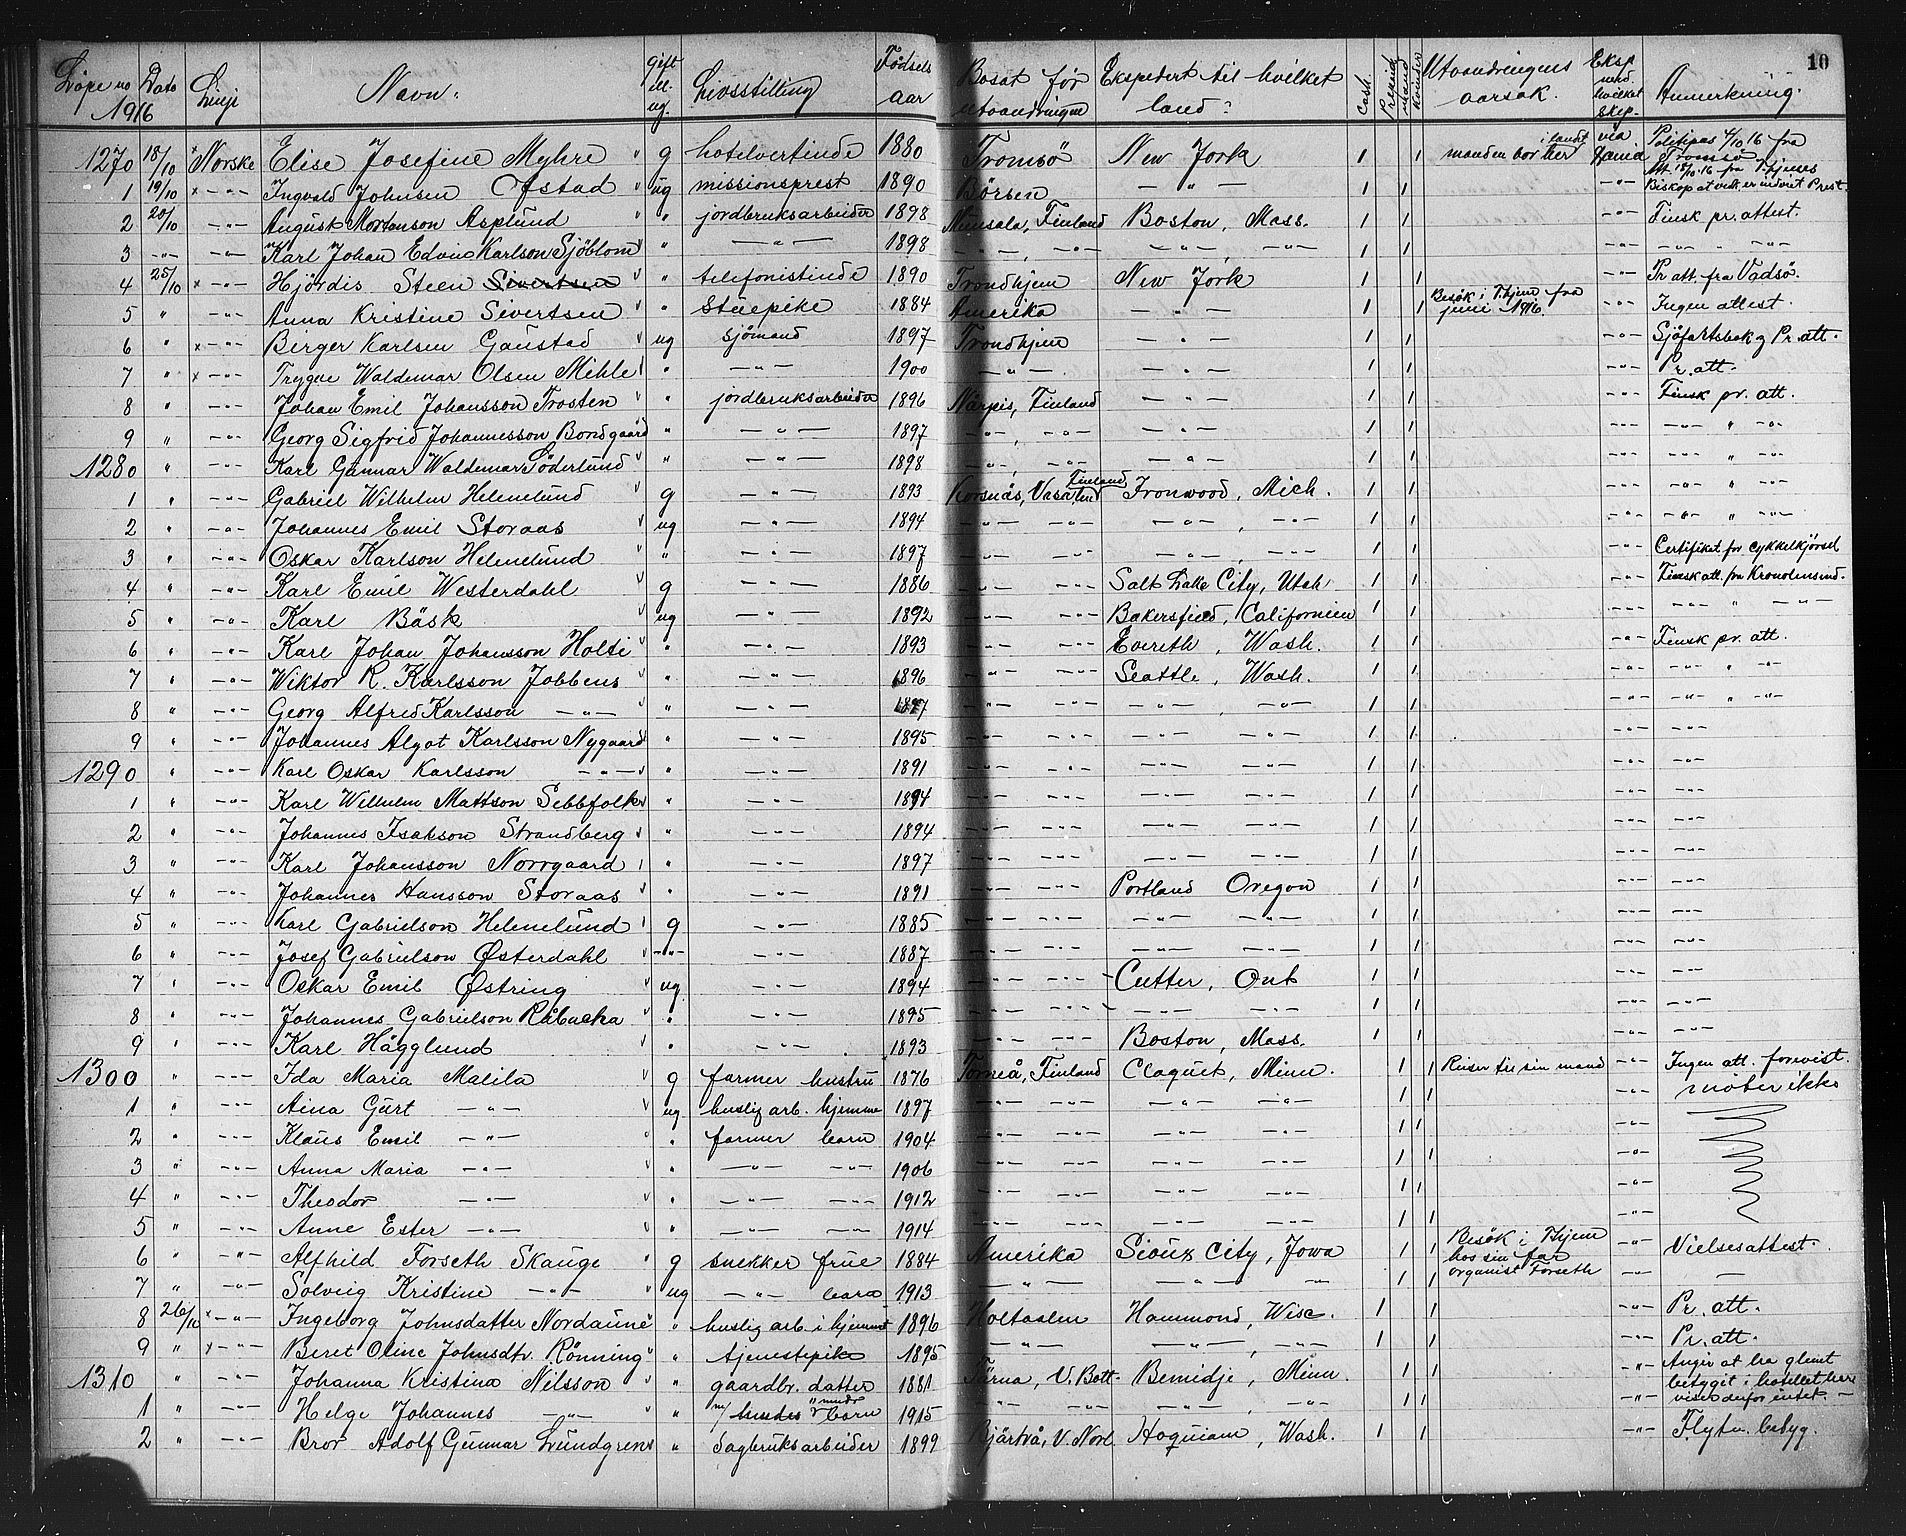 10
Löpe no 1916 Dato Linje Navn. gift ell. ug. Livsstilling Fødsels aar Bosat før utvandringen Ekspedert til hvilket land? Cash. Prepaid Mand Kvinder Utvandringens aarsak. Eksp med hvilket skep. Anmerkning.
1270 18/10 x Norske Elise Josefine Myhre " g hotelvertinde 1880 Tromsö New York 1 1 manden bor her i landt via Politipas 4/10 16 fra Tromsö
1 19/10 x -"- Ingvald Johnsen Ofstad " ug missionsprest 1890 Börsen -"- 1 1 -"- Att. 18/10 16 fra Thjems Biskop at vedk. er indviet Prest.
2 20/10 -"- August Mortenson Asplund " " jordbruksarbeider 1898 Munsala, Finland Boston, Mass. 1 1 -"- Finsk pr. attest.
3 -"- -"- Karl Johan Edvin Karlson Sjöblom " " -"- 1898 -"-, -"- -"- -"- 1 1 -"- -"- -"- -"-
4 25/10 x -"- Hjördis Steen Sivertsen " " telefonistinde 1890 Trondhjem New York 1 1 -"- Pr att. fra Vadsö.
5 " -"- Anna Kristine Sivertsen " " Stuepike 1884 Amerika -"- 1 1 Besök i Thjem fra juni 1916. -"- Ingen attest.
6 " x -"- Berger Karlsen Gaustad " ug sjömand 1897 Trondhjem -"- 1 1 -"- Sjöfartsbok og Pr. att.
7 " x -"- Trygve Waldemar Olsen Mihle " " -"- 1900 -"- -"- 1 1 -"- Pr. att.
8 " -"- Johan Emil Johansson Trosten " " jordbruksarbeider 1896 Närpis, Finland -"- 1 1 -"- Finsk pr. att.
9 " -"- Georg Sigfrid Johannesson Bondgaard " -"- 1897 -"-, -"- -"- 1 1 -"- -"- " -"-
1280 " -"- Karl Gunnar Waldemar Söderlund " " -"- 1898 -"-, -"- -"- 1 1 -"- -"- " -"-
1 " -"- Gabriel Wilhelm Helenelund " g -"- 1893 Korsnäs, Vasa, Finland Ironwood, Mich. 1 1 -"- -"- " -"-
2 " -"- Johannes Emil Storaas " ug -"- 1894 -"- -"- -"-, -"- 1 1 -"- -"- " -"-
3 " -"- Oskar Karlson Helenelund " -"- 1897 -"- -"- -"-, -"- 1 1 -"- Certifikat for cykkelkjörsel
4 " -"- Karl Emil Westerdahl " g -"- 1886 -"- -"- Salt Lake City, Utah 1 1 -"- Finsk att. fra Kronolensmd.
5 " -"- Karl Bäsk " ug -"- 1892 -"- -"- Bakersfield, Californien 1 1 -"- -"- " -"-
6 " -"- Karl Johan Johansson Holti " " -"- 1893 -"- -"- Evereth, Wash. 1 1 -"- Finsk pr. att.
7 " -"- Wiktor R. Karlsson Jobbens " " -"- 1896 -"- -"- Seattle, Wash. 1 1 -"- -"- " -"-
8 " -"- Georg Alfred Karlsson -"- " " -"- 1897 -"- -"- -"-, -"- 1 1 -"- -"- " -"-
9 " -"- Johannes Algot Karlsson Nygaard " " -"- 1895 -"- -"- -"- -"- 1 1 -"- -"-
1290 " -"- Karl Oskar Karlsson -"- " " -"- 1891 -"- -"- -"- -"- 1 1 -"- -"-
1 " -"- Karl Wilhelm Mattson Sebbfolk " " -"- 1894 -"- -"- -"- -"- 1 1 -"- -"-
2 " -"- Johannes Isakson Strandberg " " -"- 1894 -"- -"- -"- -"- 1 1 -"- -"-
3 " -"- Karl Johansson Norrgaard " " -"- 1897 -"- -"- -"- -"- 1 1 -"- -"-
4 " -"- Johannes Hansson Storaas " " -"- 1891 -"- -"- Portland Oregon 1 1 -"- -"-
5 " -"- Karl Gabrielson Helenelund " g -"- 1885 -"- -"- -"- -"- 1 1 -"- -"-
6 " -"- Josef Gabrielson Østerdahl " -"- -"- 1887 -"- -"- -"- -"- 1 1 -"- -"-
7 " -"- Oskar Emil Østring " ug -"- 1894 -"- -"- Cutter, Ont 1 1 -"- -"-
8 " -"- Johannes Gabrielson Råbacka " " -"- 1895 -"- -"- -"- -"- 1 1 -"- -"-
9 " -"- Karl Hägglund " -"- 1893 -"- -"- Boston, Mass. 1 1 -"- -"-
1300 " -"- Ida Maria Malila " g farmer hustru 1876 Torneå, Finland Cloquet, Minn. 1 1 Reiser til sin mand -"- Ingen att. forevist.
1 " -"- Aina Gurt -"- " ug huslig arb. hjemme 1897 -"- -"- -"- -"- 1 1 -"- möter ikke
2 " -"- Klaus Emil -"- " " farmer barn 1904 -"- -"- -"- -"- 1 1 -"-
3 " -"- Anna Maria -"- " " -"- -"- 1906 -"- -"- -"- -"- 1 1 -"-
4 " -"- Theodor -"- " " -"- -"- 1912 -"- -"- -"- -"- 1 1 -"-
5 " -"- Anne Ester -"- " " -"- -"- 1914 -"- -"- -"- -"- 1 1 -"-
6 " -"- Alfhild Forseth Skauge " g snekker frue 1884 Amerika Sioux City, Iowa 1 1 Besök i Thjem hos sin far organist Forseth -"- Vielsesattest.
7 " -"- Solveig Kristine -"- " ug -"- barn 1913 -"- -"- -"- 1 1 -"- —
8 26/10 x -"- Ingeborg Johnsdatter Nordaune " " huslig arb. i hjemmet 1896 Holtaalen Hammond, Wisc. 1 1 -"- Pr. att.
9 " x -"- Beret Oline Johnsdtr. Rönning " " tjenestepike 1895 -"- -"-, -"- 1 1 -"- Pr. att.
1310 " -"- Johanna Kristina Nilsson " " gaardbr. datter 1881 Tärna, V. Bott. Bemidji, Minn. 1 1 -"- Angiv at ha glemt betyget i hotellet har
1 " -"- Helge Johannes -"- " " m/ hendes 11 mndr barn 1915 -"- -"- -"-, -"- 1 1 -"- vises derfor intet. —
2 " -"- Bror Adolf Gunnar Lundgren " " sagbruksarbeider 1899 Bjärtrå, V. Norl Hoquiam, Wash. 1 1 -"- Flyttn. betyg.